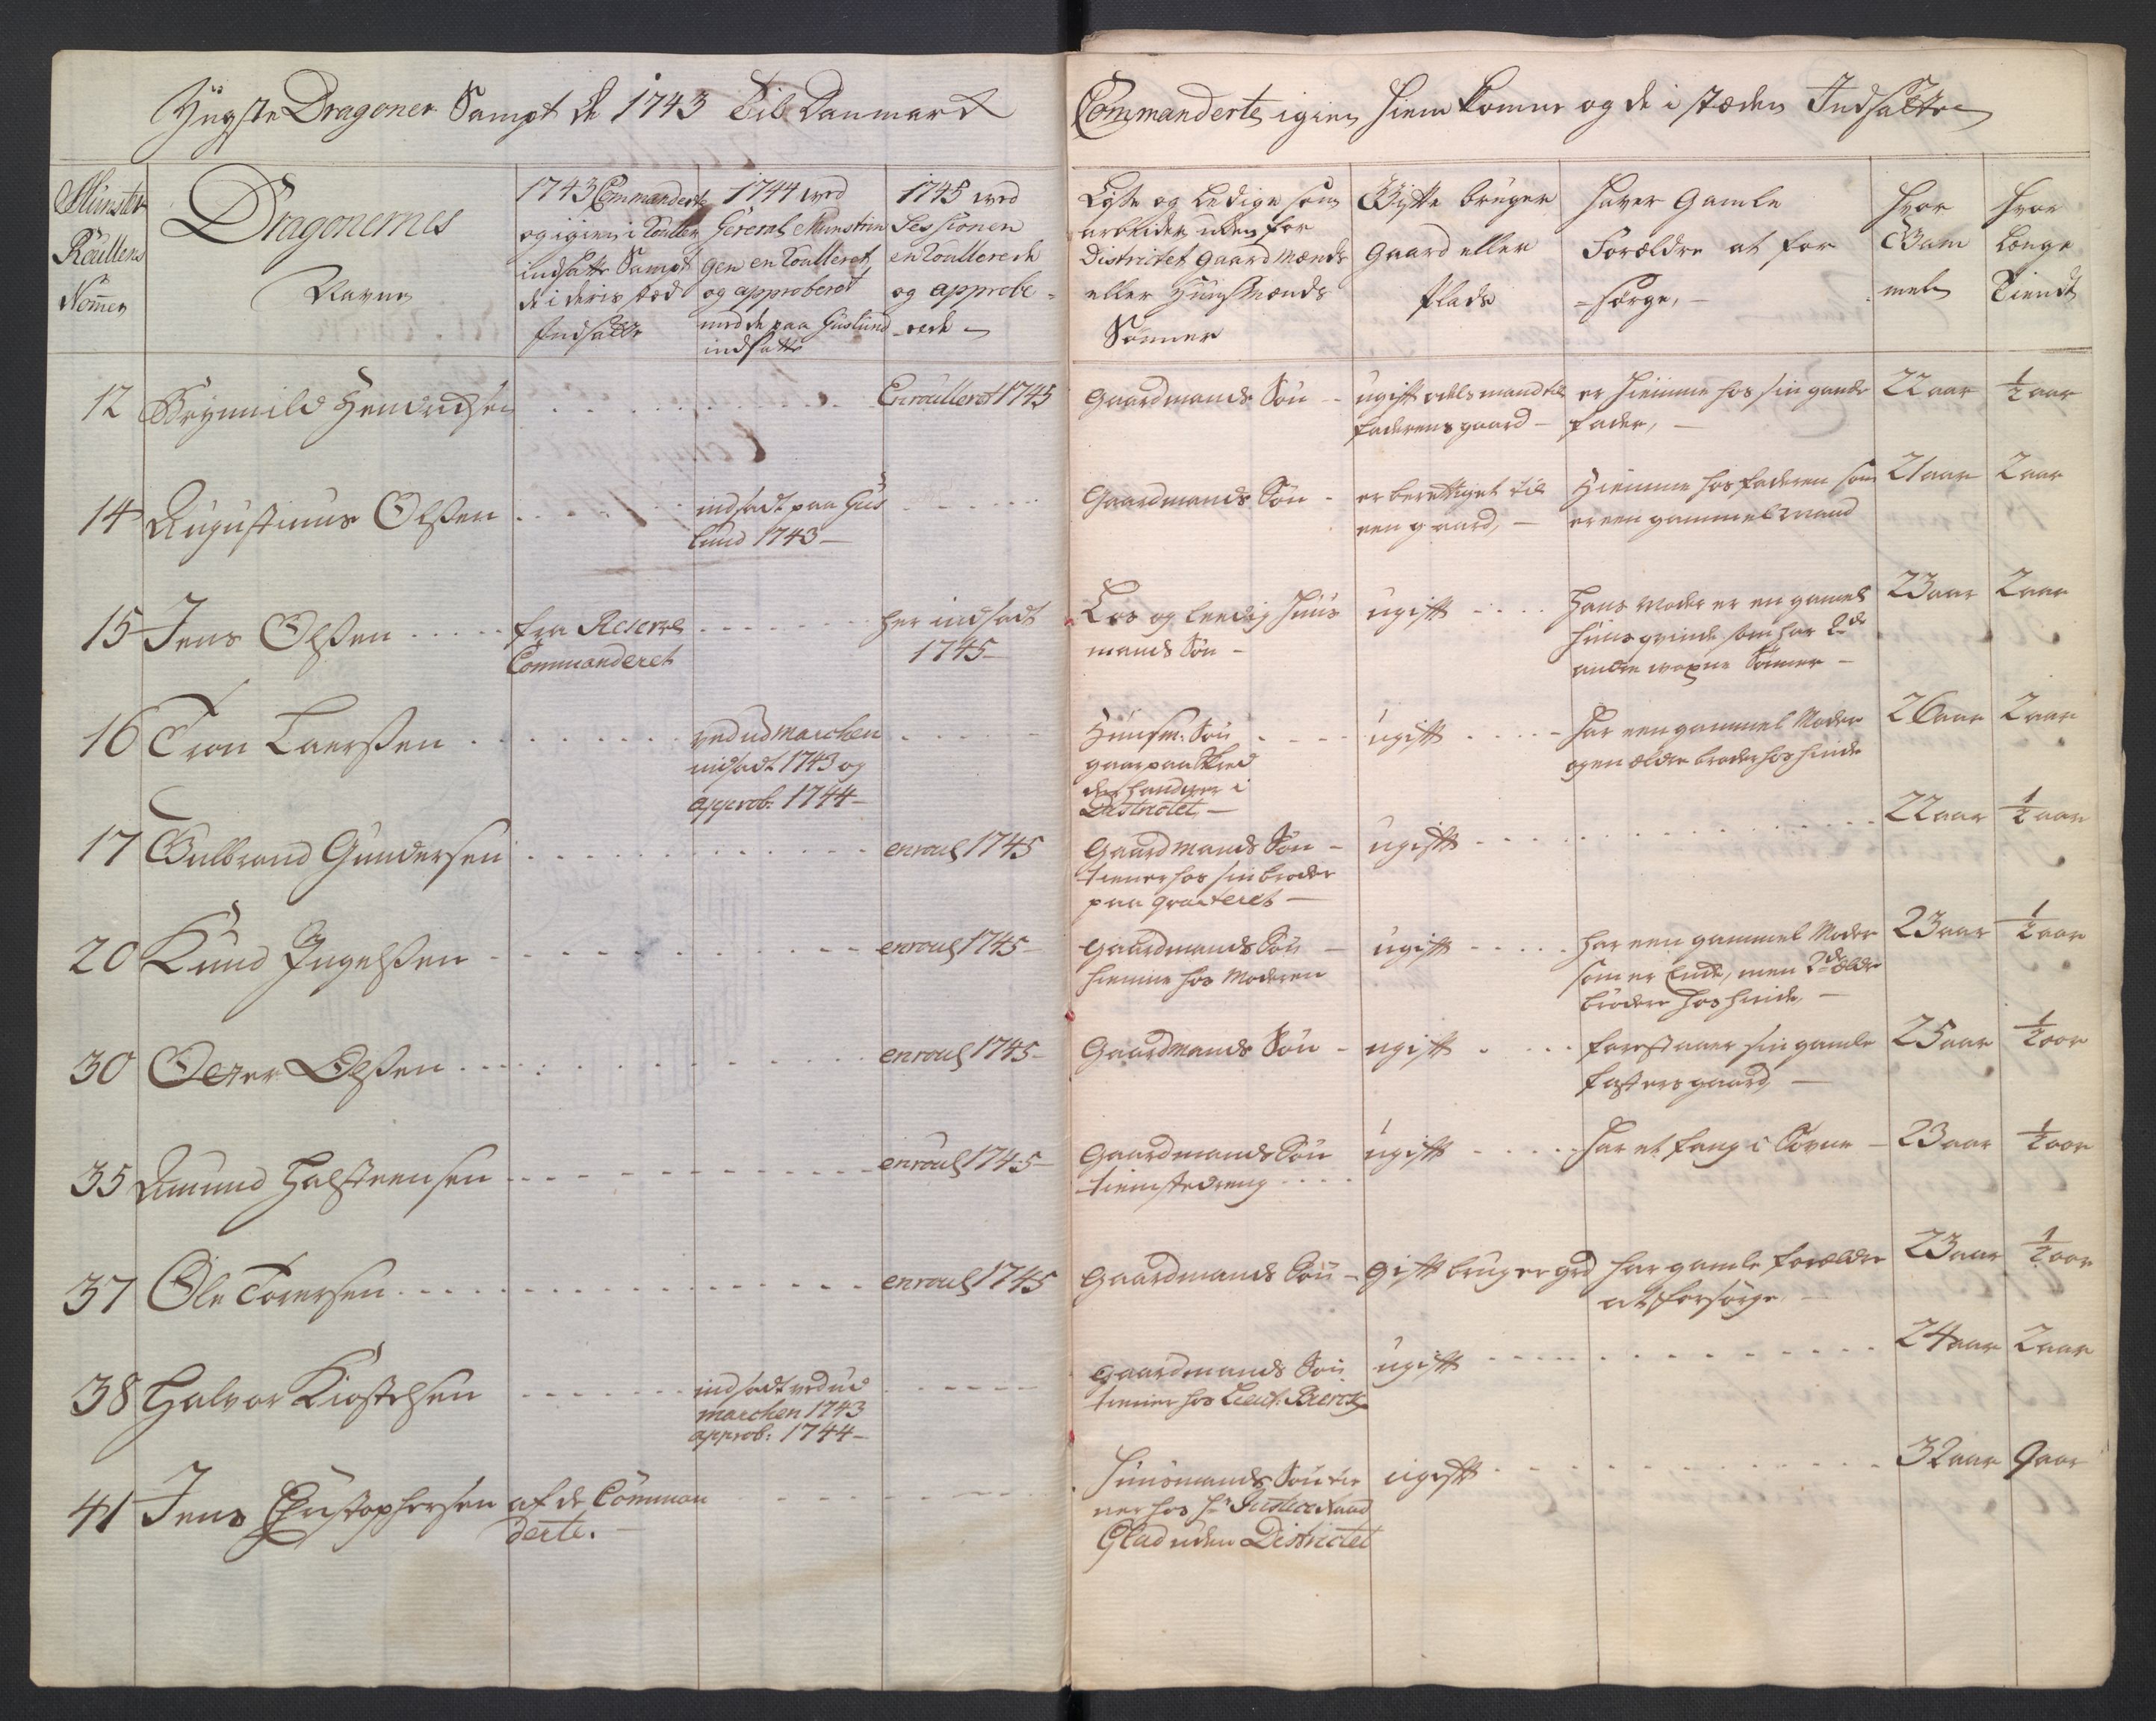 Yngste Dragoner Sampt de 1743 Til Danmark Commanderte igien hiem komne og de i stæden Indsatte
Munster Roullens Nomer
Dragonernes Navne
1743 Commanderte og igien i Roullen indsatte Sampt de i deris stæd Indsatte
1744 ved General Munstrin gen enroulleret og approberet med de paa Guslund indsatte
1745 ved Sessionen enroullerede og approbe rede
Løse og Ledige som arbeider uden for Districtet gaardmænds eller Huusmænds Sønner
Gifte bruger Gaard eller Plads
haver Gamle Forældre at for sørge,
hvor Gam mel
hvor Længe Tient
12 Brynnild Hendrichsen
Enroulleret 1745
Gaardmands Søn
ugift odelsmand til
faderens gaard
er hiemme hos sin gamle
fader,
22 aar
½ aar
14 Augustinus Olssen
indsadt paa Gus
lund 1743
Gaardmands Søn
er berettiget til
een gaard,
Hiemme hos faderen som
er een gammel Mand
21 aar
2 aar
15 Jens Olssen
fra Reserve
Commanderet
her indsadt
1745
Løs og leedig huus
mands Søn
ugift
hans Moder er en gamel
huusqvinde som har 2de
andre voxne Sønner
23 aar
2 aar
16 Tron Laerssen
ved udmarchen
indsadt 1743 og
approb: 1744
Huusm: Søn
gaar paa
i
Districtet
ugift
har een gammel Moder
og en ældre broder hos hinde
26 aar
2 aar
17 Gulbrand Gundersen
enroul 1745
Gaardmands Søn
tiener hos sin broder
paa qvarteret
ugift
22 aar
½ aar
20 Knud Ingelssen
enroul 1745
Gaardmands Søn
hiemme hos Moderen
ugift
har een gammel Moder
som er Enke, men 2de ældre
brødre hos hinde,
23 aar
½ aar
30 Peter Olssen
enroul 1745
Gaardmands Søn
ugift
forestaaer sin gamle
fasters gaard,
25 aar
½ aar
35 Amund Halsteensen
enroul 1745
Gaardmands Søn
tienistedreng
ugift
har et fang i
23 aar
½ aar
37 Ole Torersen
enroul 1745
Gaardmands Søn
Gift bruger grd
har gamle forældre
at forsørge
23 aar
½ aar
38 Halvor Kiostelsen
indsadt ved ud
marchen 1743
approb: 1744
Gaardmands Søn
tiener hos Lieut:
ugift
24 aar
2 aar
41 Jens Christophersen
af de Comman
derte.
huusmands Søn tie
ner hos hr Justice Raad
Glad uden Districtet
ugift
32 aar
9 aar